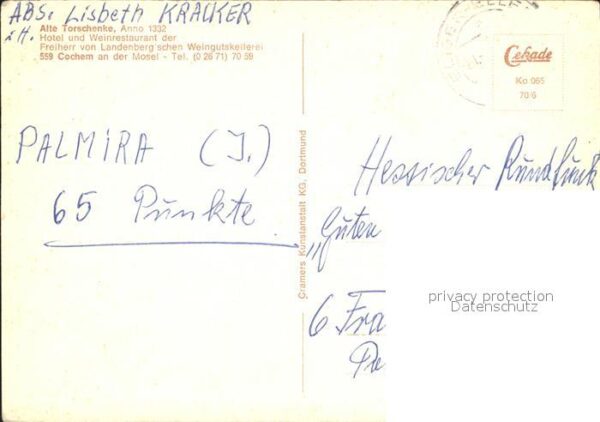 ABS: Lisbeth KRACKER
i.H.
Alte Torschenke, Anno 1332
Hotel und Weinrestaurant der
Freiherr von Landenberg'schen Weingutskellerei
559 Cochem an der Mosel - Tel. (0 26 71) 70 59
PALMIRA (J.)
65 Punkte
Cramers Kunstanstalt KG, Dortmund
Cekade
Ko 065
70 6
Hessischer Rundfunk
„Guten
6 Fra
privacy protection
Datenschutz